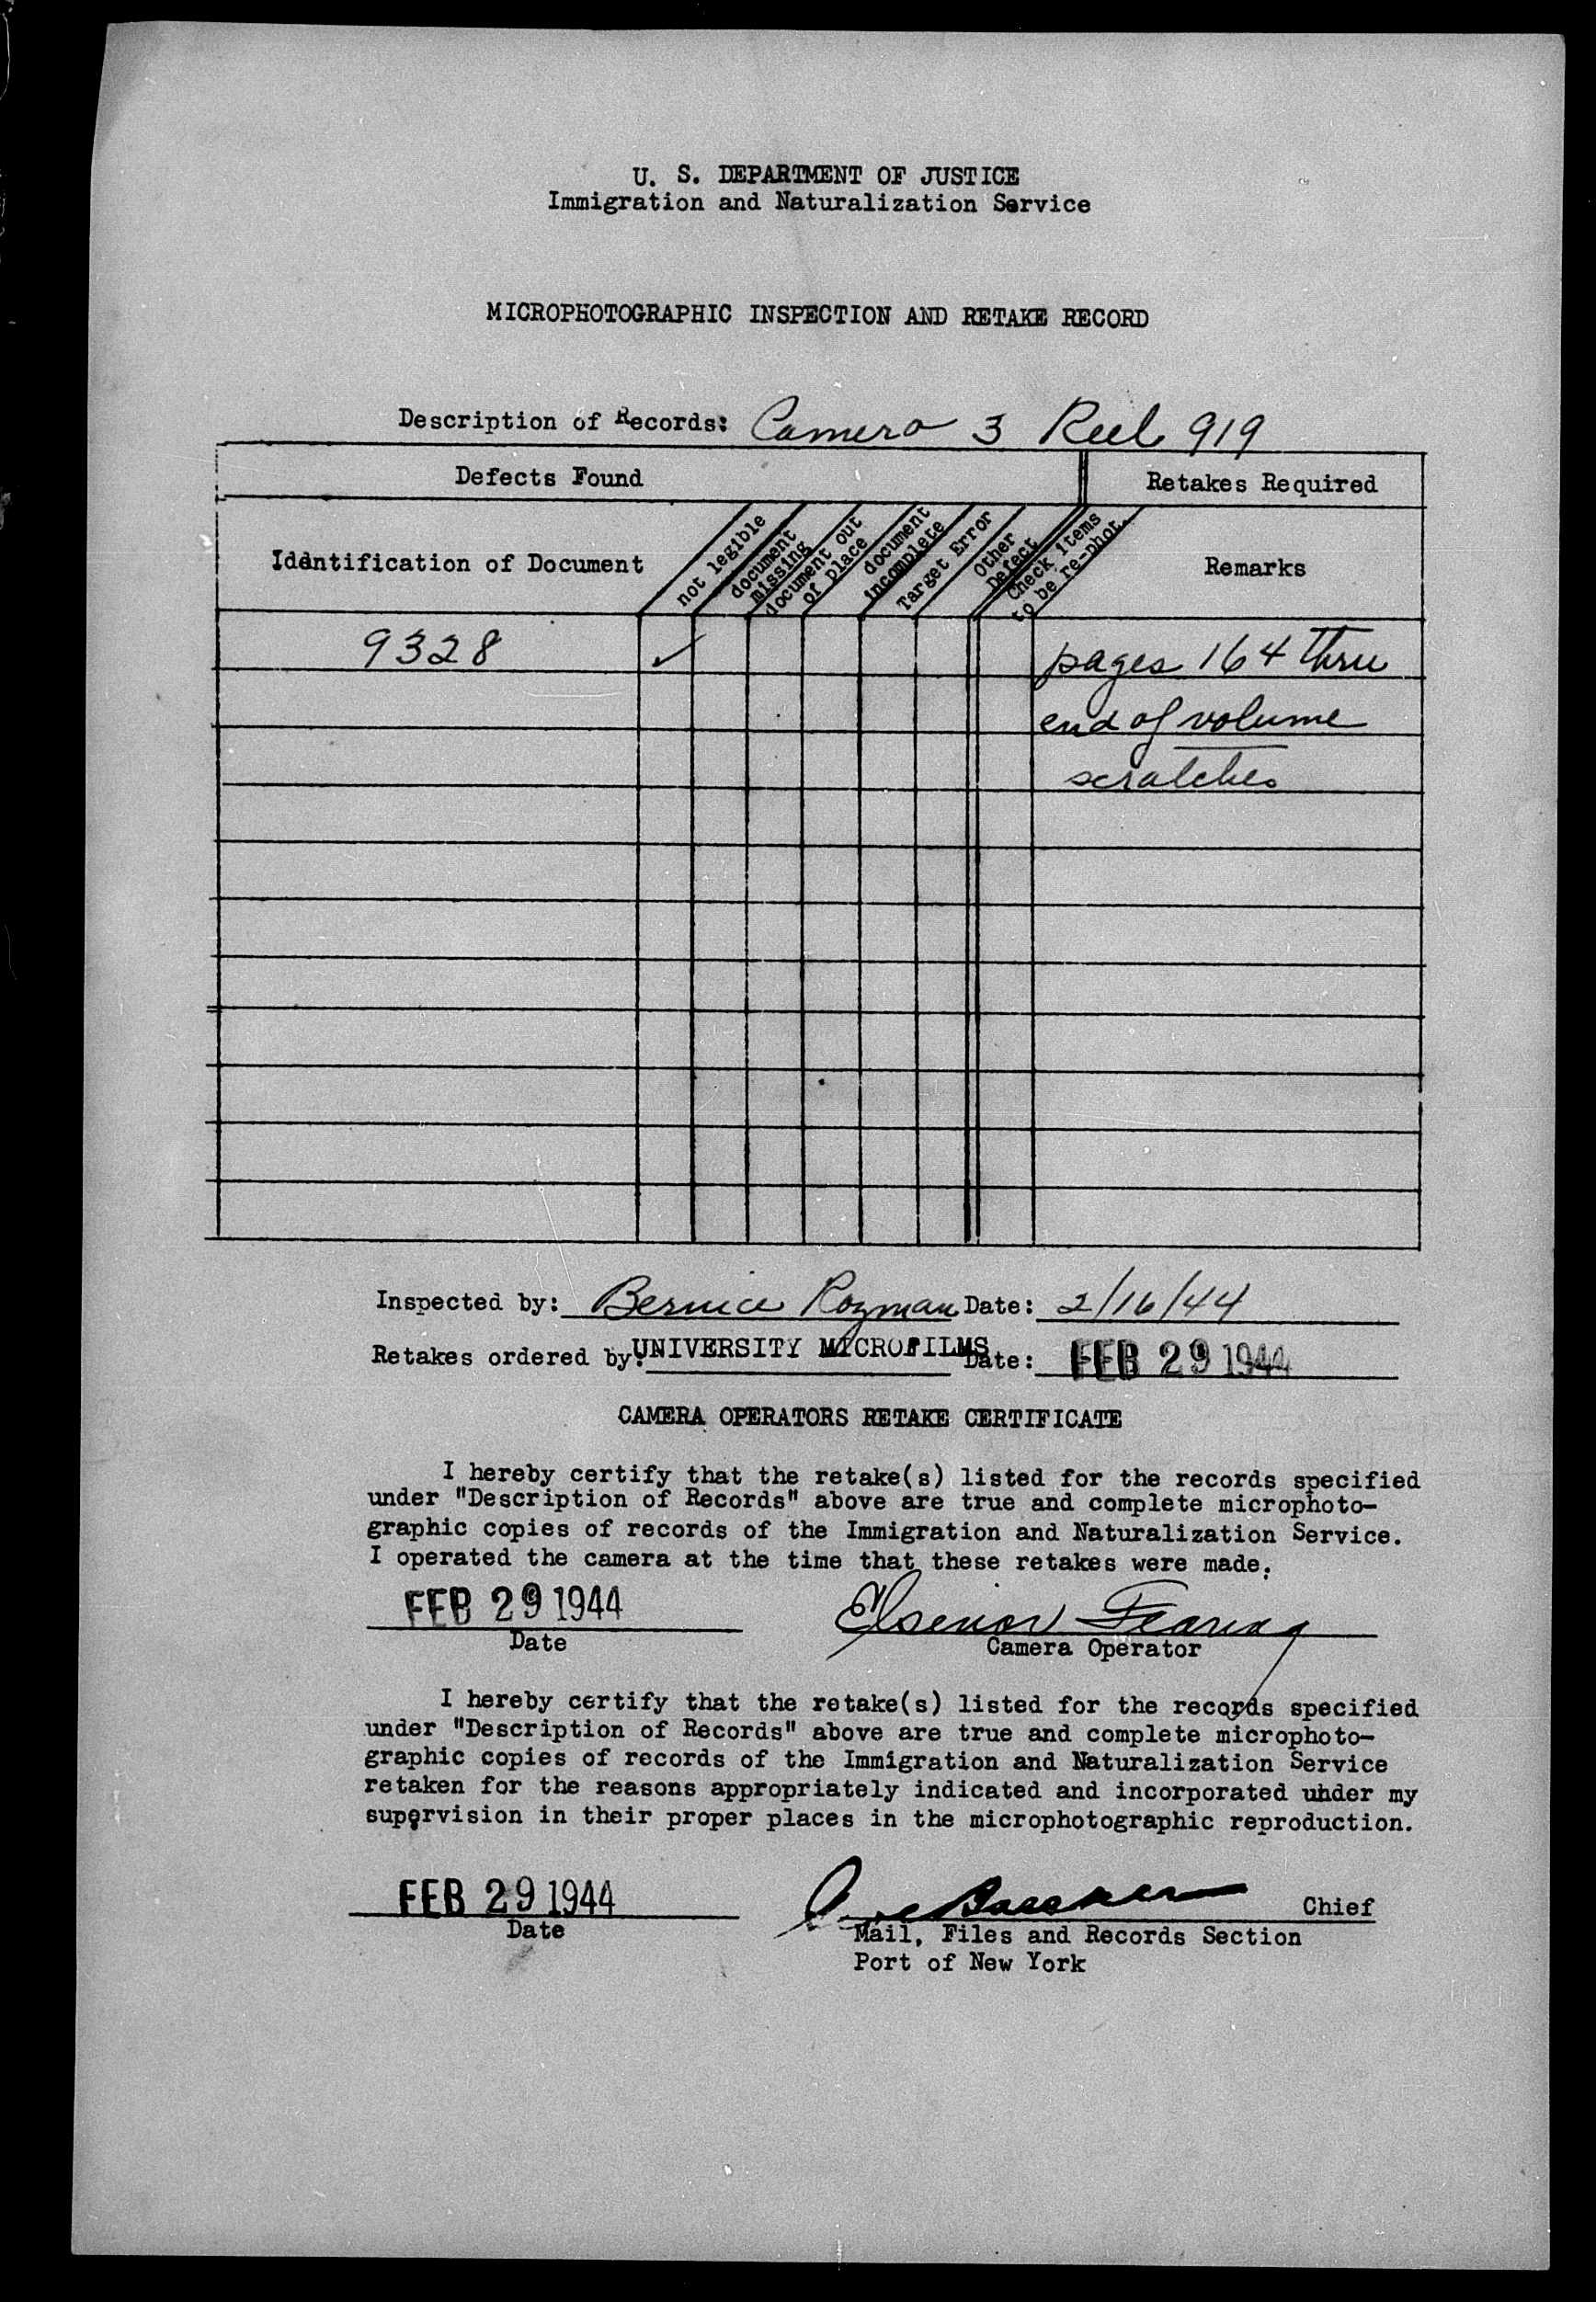 U. S. DEPARTMENT OF JUSTICE
Immigration and Naturalization Service
MICROPHOTOGRAPHIC INSPECTION AND RETAKE RECORD
Description of Records: Camera 3 Reel 919
Defects Found
Retakes Required
Identification of Document
not legible
document missing
document out of place
document incomplete
Target Error
Other Defect
Check items to be re-phot.
Remarks
9328 ✓ pages 164 thru
end of volume
scratches
Inspected by: Bernice Rozman Date: 2/16/44
Retakes ordered by: UNIVERSITY MICROFILMS Date: FEB 29 1944
CAMERA OPERATORS RETAKE CERTIFICATE
I hereby certify that the retake(s) listed for the records specified
under "Description of Records" above are true and complete microphoto-
graphic copies of records of the Immigration and Naturalization Service.
I operated the camera at the time that these retakes were made.
FEB 29 1944
Date
Camera Operator
I hereby certify that the retake(s) listed for the records specified
under "Description of Records" above are true and complete microphoto-
graphic copies of records of the Immigration and Naturalization Service
retaken for the reasons appropriately indicated and incorporated under my
supervision in their proper places in the microphotographic reproduction.
FEB 29 1944
Chief
Date
Mail, Files and Records Section
Port of New York